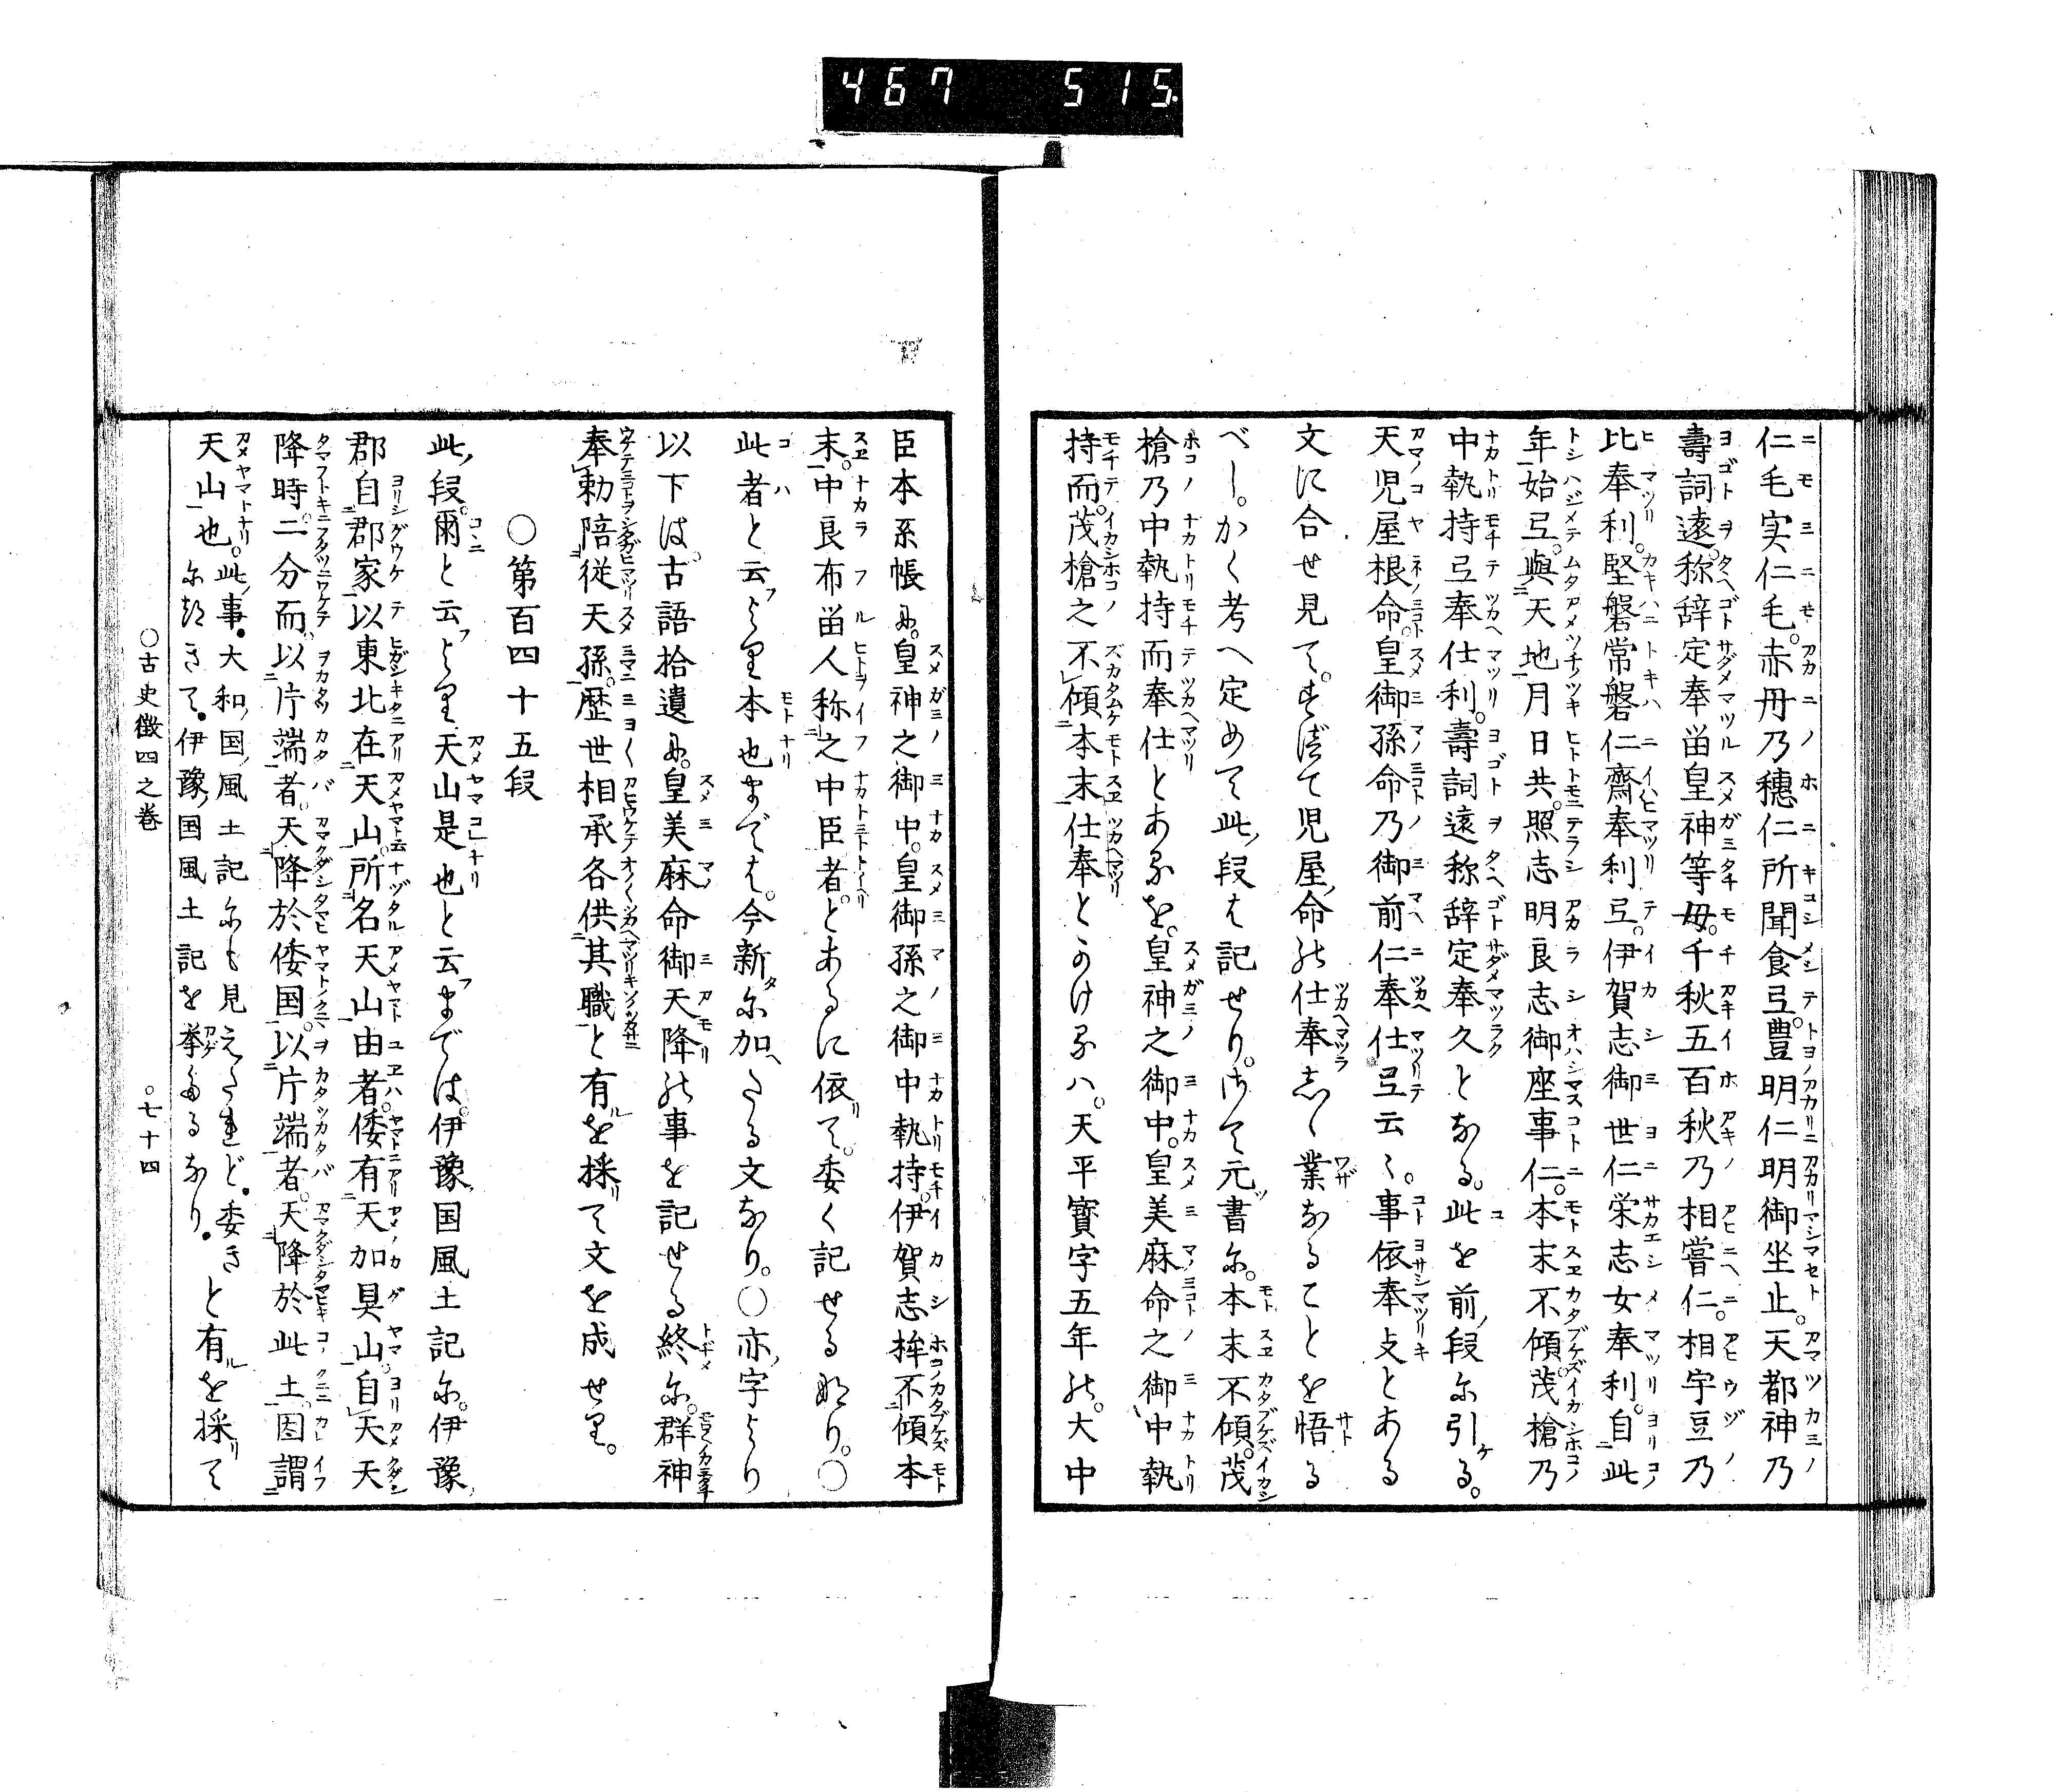 467 515.
仁毛実仁毛。赤丹乃穂仁所聞食弖。豊明仁明御坐止。天都神乃
壽詞遠。称辞定奉留皇神等母。千秋五百秋乃相嘗仁。相宇豆乃
比奉利。堅磐常磐仁齋奉利弖。伊賀志御世仁栄志女奉利。自此
年始弖。與天地月日共。照志明良志御座事仁。本末不傾。茂槍乃
中執持弖奉仕利。壽詞遠称辞定奉久とある。此を前ノ段尓引ケる。
天児屋根命。皇御孫命乃御前仁奉仕弖云々。事依奉支とある
文に合せ見て。すべて児屋ノ命の仕奉しゝ業あることを悟る
べし。かく考へ定めて此ノ段を記せり。さて元ツ書尓。本末不傾。茂
槍乃中執持而奉仕とあるを。皇神之御中。皇美麻命之御中執
持而。茂槍之不傾本末仕奉とかけるハ。天平寳字五年の。大中
臣本系帳に。皇神之御中。皇御孫之御中執持。伊賀志桙不傾本
末。中良布留人称之中臣者。とあるに依リて。委く記せるなり。○
此者と云フより本也までを。今新タ尓加へたる文なり。○亦ノ字より
以下は。古語拾遺に。皇美麻命御天降の事を記せる終尓。群神
奉勅陪従天孫。歴世相承各供其職と有ルを採リて文を成せり。
○第百四十五段
此ノ段。爾と云フより。天山是也と云フまでは。伊豫ノ国風土記尓。伊豫ノ
郡自郡家以東北在天山。所名天山由者。倭有天加具山。自天天
降時。二分而。以片端者。天降於倭国。以片端者。天降於此土。因謂
天山也。此ノ事。大和ノ国ノ風土記尓も見えたれど。委き
尓就きて。伊豫ノ国風土記を挙たるなり。と有ルを採リて
○古史徴四之巻
○七十四